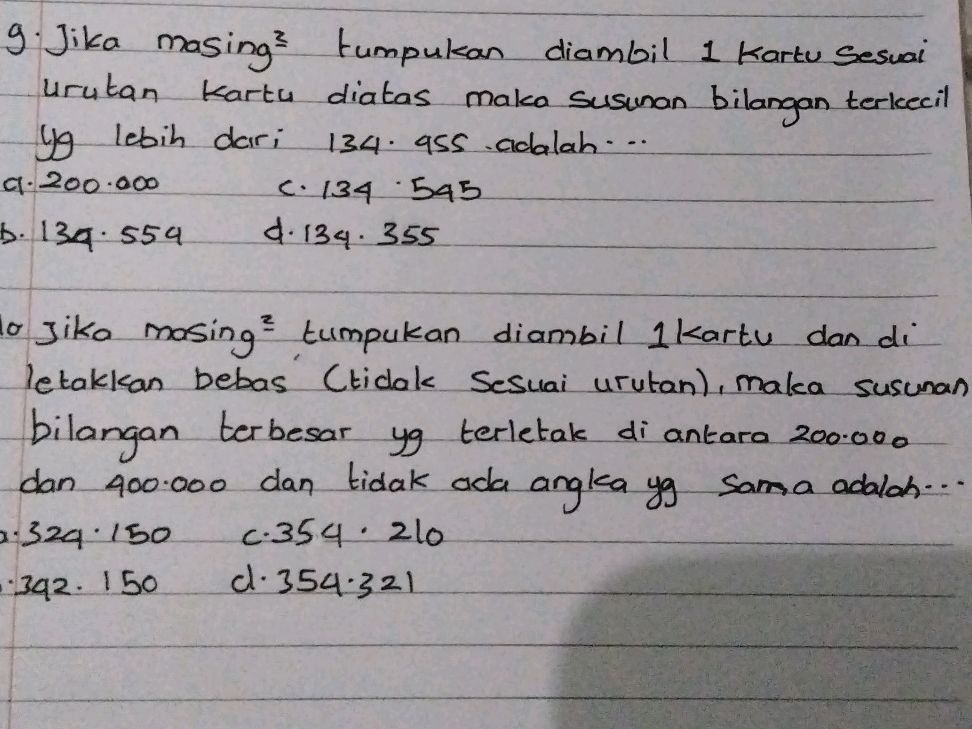 9. Jika masing² tumpukan diambil 1 kartu sesuai
urutan kartu diatas maka susunan bilangan terkecil
yg lebih dari 134.455 adalah...
a. 200.000 c. 134.545
b. 134.554 d. 134.355
10 Jika masing² tumpukan diambil 1 kartu dan di
letakkan bebas (tidak sesuai urutan), maka susunan
bilangan terbesar yg terletak di antara 200.000
dan 400.000 dan tidak ada angka yg sama adalah...
a. 324.150 c. 354.210
. 342.150 d. 354.321